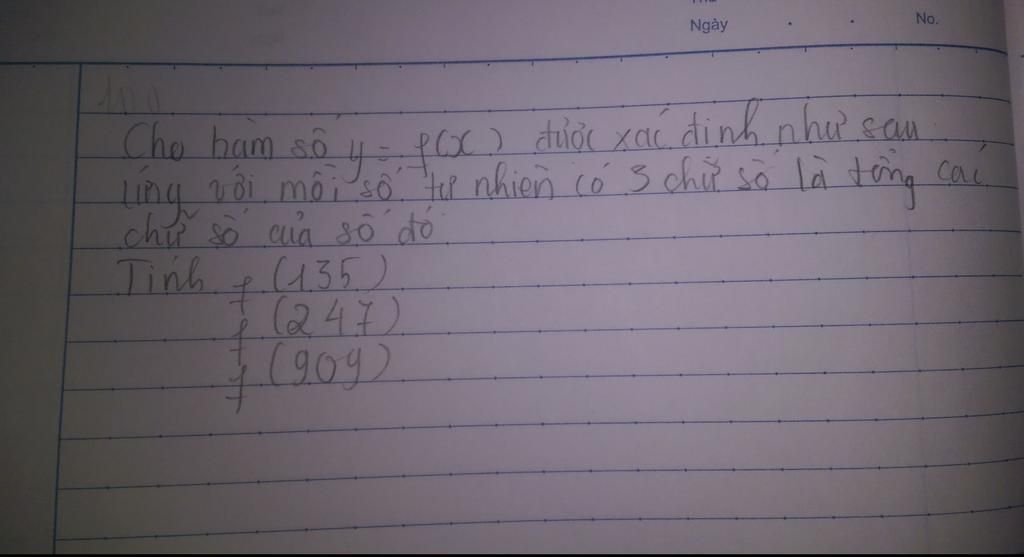 Ngày . . No.
100
Cho hàm số y = f(x) được xác định như sau
ứng với mỗi số tự nhiên có 3 chữ số là tổng các
chữ số của số đó
Tính f (135)
f (247)
f (909)